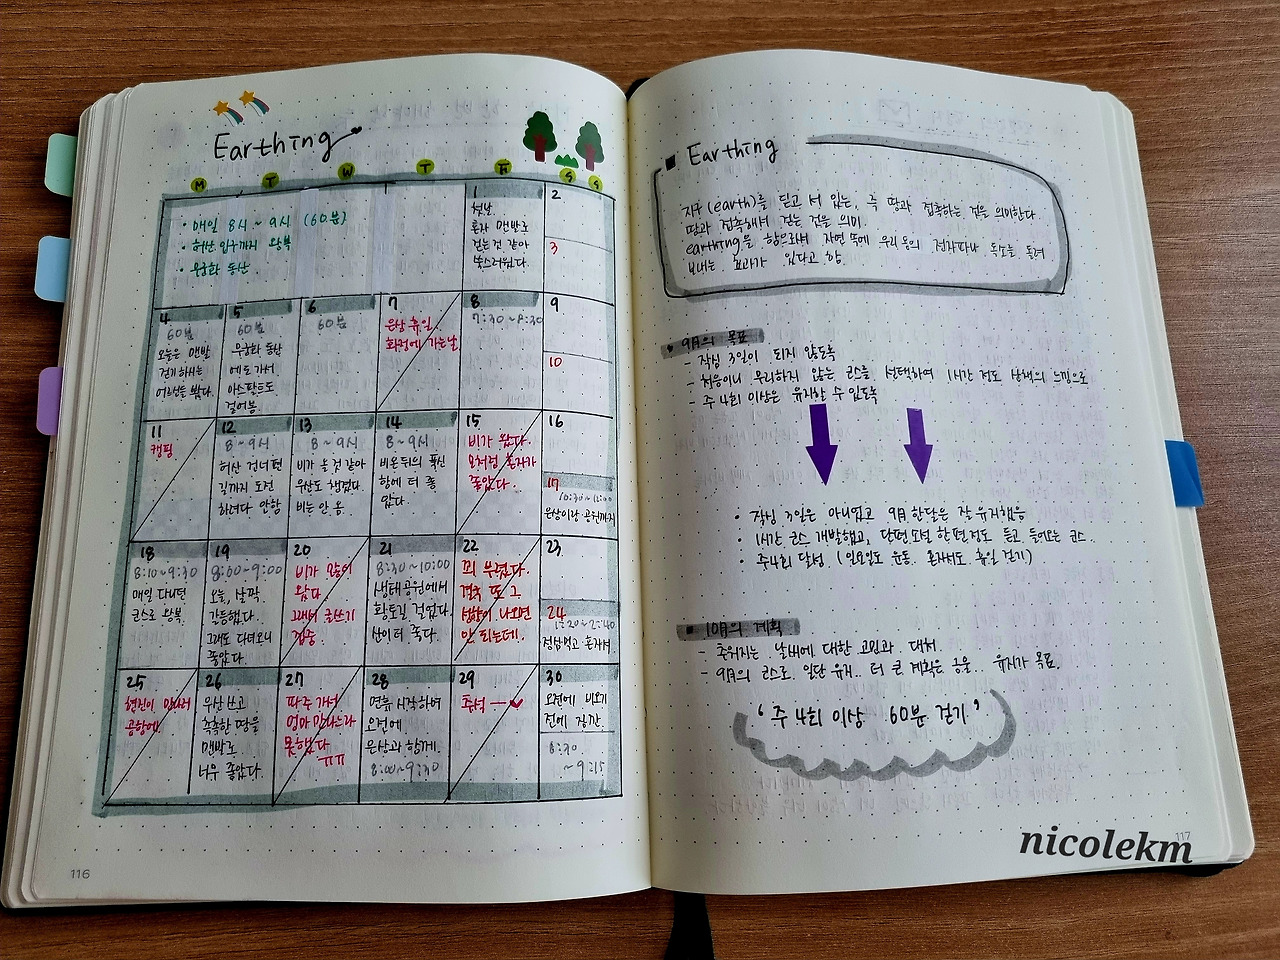 Earthing
M T W T F S S
· 매일 8시 ~ 9시 (60분)
· 허산 입구까지 왕복
· 무궁화 동산
1
첫날
혼자 맨발로
걷는것 같아
쑥스러웠다.
2
3
4
60분
오늘은 맨발
걷기 하시는
어르신들 봤다.
5
60분
무궁화 동산
에도 가서
아스팔트도
걸어봄.
6
60분
7
은상 휴일
화정에 가는날
8
7:30 ~ 8:30
9
10
11
캠핑
12
8 ~ 9시
허산 건너편
길까지 도전
하려다 안함
13
8 ~ 9시
비가 올것 같아
우산도 챙겼다.
비는 안 옴.
14
8 ~ 9시
비온뒤의 푹신
함에 더 좋
았다.
15
비가 왔다.
모처럼 혼자가
좋았다.
16
17
10:30 ~ 12:00
은상이랑 공원까지
18
8:10 ~ 9:30
매일 다니던
코스로 왕복.
19
8:00 ~ 9:00
오늘, 살짝,
갈등했다.
그래도 다녀오니
좋았다.
20
비가 많이
왔다
그래서 글쓰기
집중.
21
8:30 ~ 10:00
생태공원에서
황토길 걸었다.
산이 더 좋다.
22
꾀 부렸다.
경축 또 그
상황이 나오면
안 되는데.
23
24
1:20 ~ 2:40
점심먹고 혼자서.
25
현진이 만나러
공항에.
26
우산 쓰고
촉촉한 땅을
맨발로
너무 좋았다.
27
파주 가서
엄마 만나느라
못했다
ㅠㅠ
28
연휴 시작하여
오전에
은상과 함께.
8:00 ~ 9:30
29
추석
30
오전에 비오기
전에 잠깐.
8:30
~ 9:15
116
■ Earthing
지구(earth)를 딛고 서 있는, 즉 땅과 접촉하는 것을 의미한다.
땅과 접촉해서 걷는 것을 의미.
earthing을 함으로써 자연 속에 우리 몸의 전자파나 독소를 돌려
보내는 효과가 있다고 함.
· 9월의 목표
- 작심 3일이 되지 않도록
- 처음이니 무리하지 않는 코스를 선택하여 1시간 정도 산책의 느낌으로
- 주 4회 이상은 유지할 수 있도록
· 작심 3일은 아니었고 9月 한달은 잘 유지했음
· 1시간 코스 개발했고, 단편 소설 한 편정도 듣고 돌아오는 코스.
· 주4회 달성 (일요일도 운동. 혼자서도 휴일 걷기)
■ 10月의 계획
- 추워지는 날씨에 대한 고민과 대처
- 9月의 코스로 일단 유지.. 더 큰 계획은 금물. 유지가 목표.
‘ 주 4회 이상 60분 걷기 ’
117
nicolekm